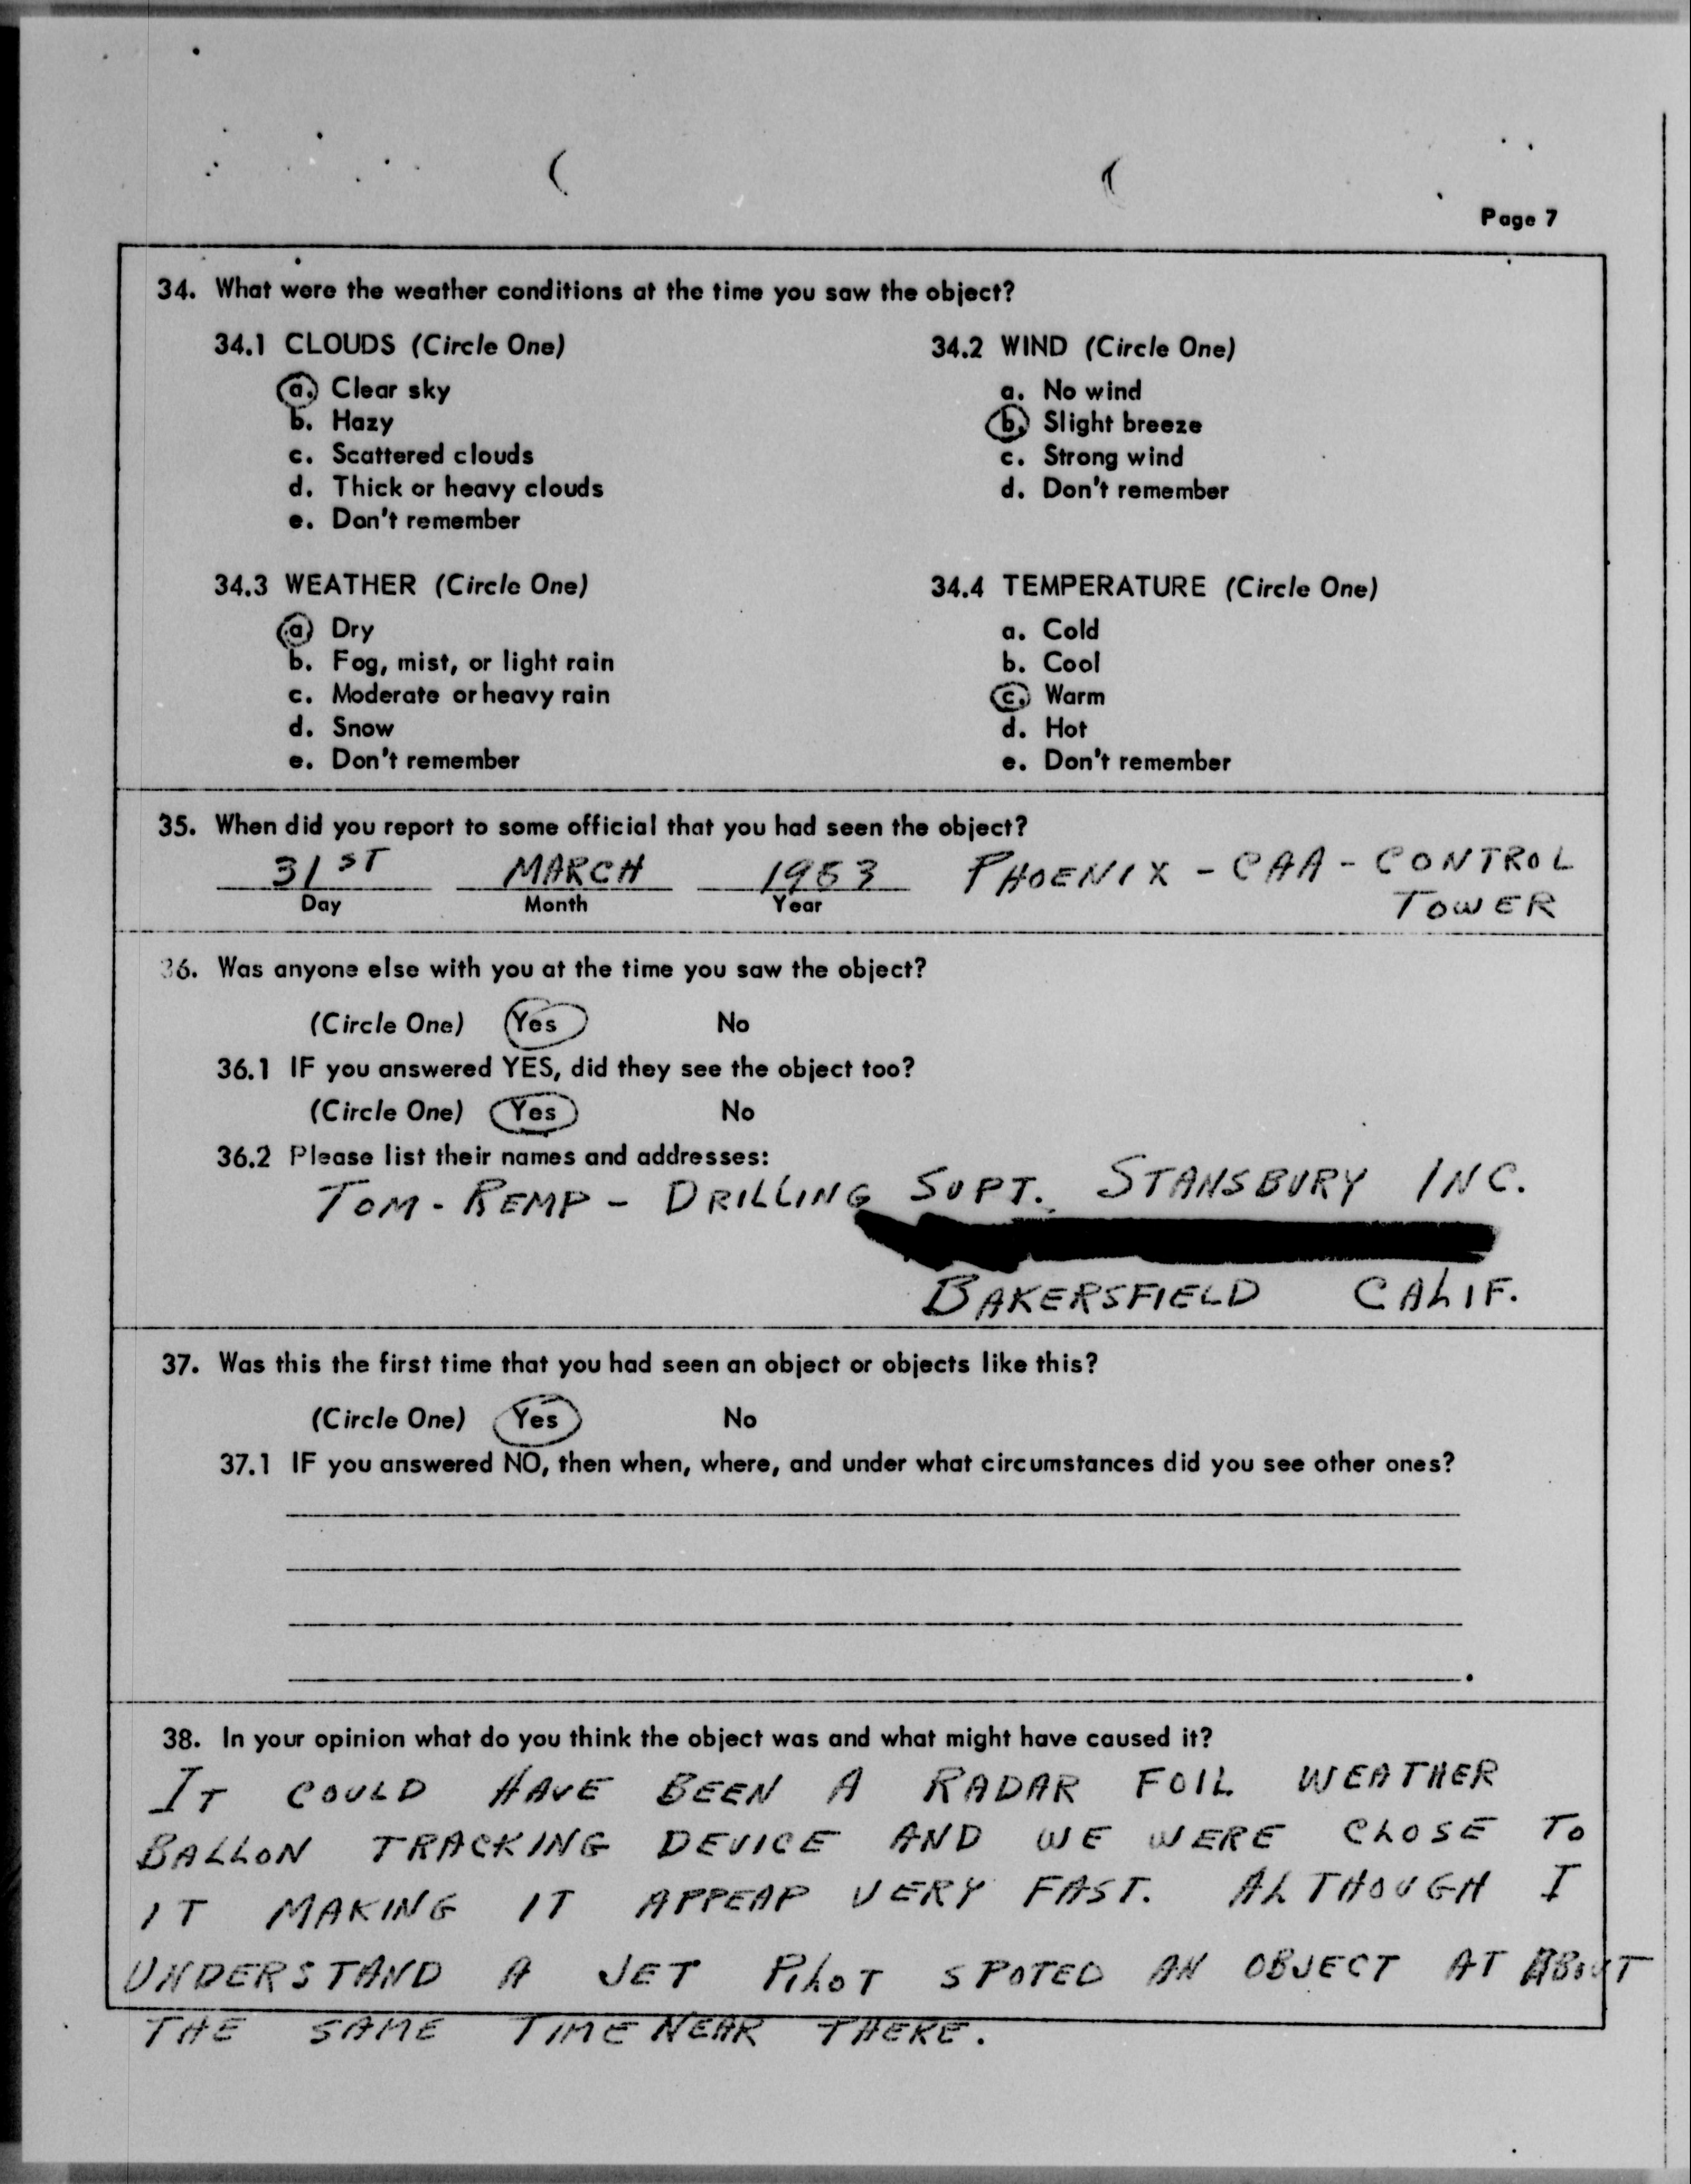 Page 7
34. What were the weather conditions at the time you saw the object?
34.1 CLOUDS (Circle One)
a. Clear sky
b. Hazy
c. Scattered clouds
d. Thick or heavy clouds
e. Don't remember
34.2 WIND (Circle One)
a. No wind
b. Slight breeze
c. Strong wind
d. Don't remember
34.3 WEATHER (Circle One)
a Dry
b. Fog, mist, or light rain
c. Moderate or heavy rain
d. Snow
e. Don't remember
34.4 TEMPERATURE (Circle One)
a. Cold
b. Cool
c. Warm
d. Hot
e. Don't remember
35. When did you report to some official that you had seen the object?
31ST MARCH 1953 PHOENIX - CAA - CONTROL
TOWER
Day Month Year
36. Was anyone else with you at the time you saw the object?
(Circle One) Yes No
36.1 IF you answered YES, did they see the object too?
(Circle One) Yes No
36.2 Please list their names and addresses:
TOM - REMP - DRILLING SUPT. STANSBURY INC.
BAKERSFIELD CALIF.
37. Was this the first time that you had seen an object or objects like this?
(Circle One) Yes No
37.1 IF you answered NO, then when, where, and under what circumstances did you see other ones?
38. In your opinion what do you think the object was and what might have caused it?
IT COULD HAVE BEEN A RADAR FOIL WEATHER
BALLON TRACKING DEVICE AND WE WERE CLOSE TO
IT MAKING IT APPEAR VERY FAST. ALTHOUGH I
UNDERSTAND A JET PILOT SPOTED AN OBJECT AT ABOUT
THE SAME TIME NEAR THERE.